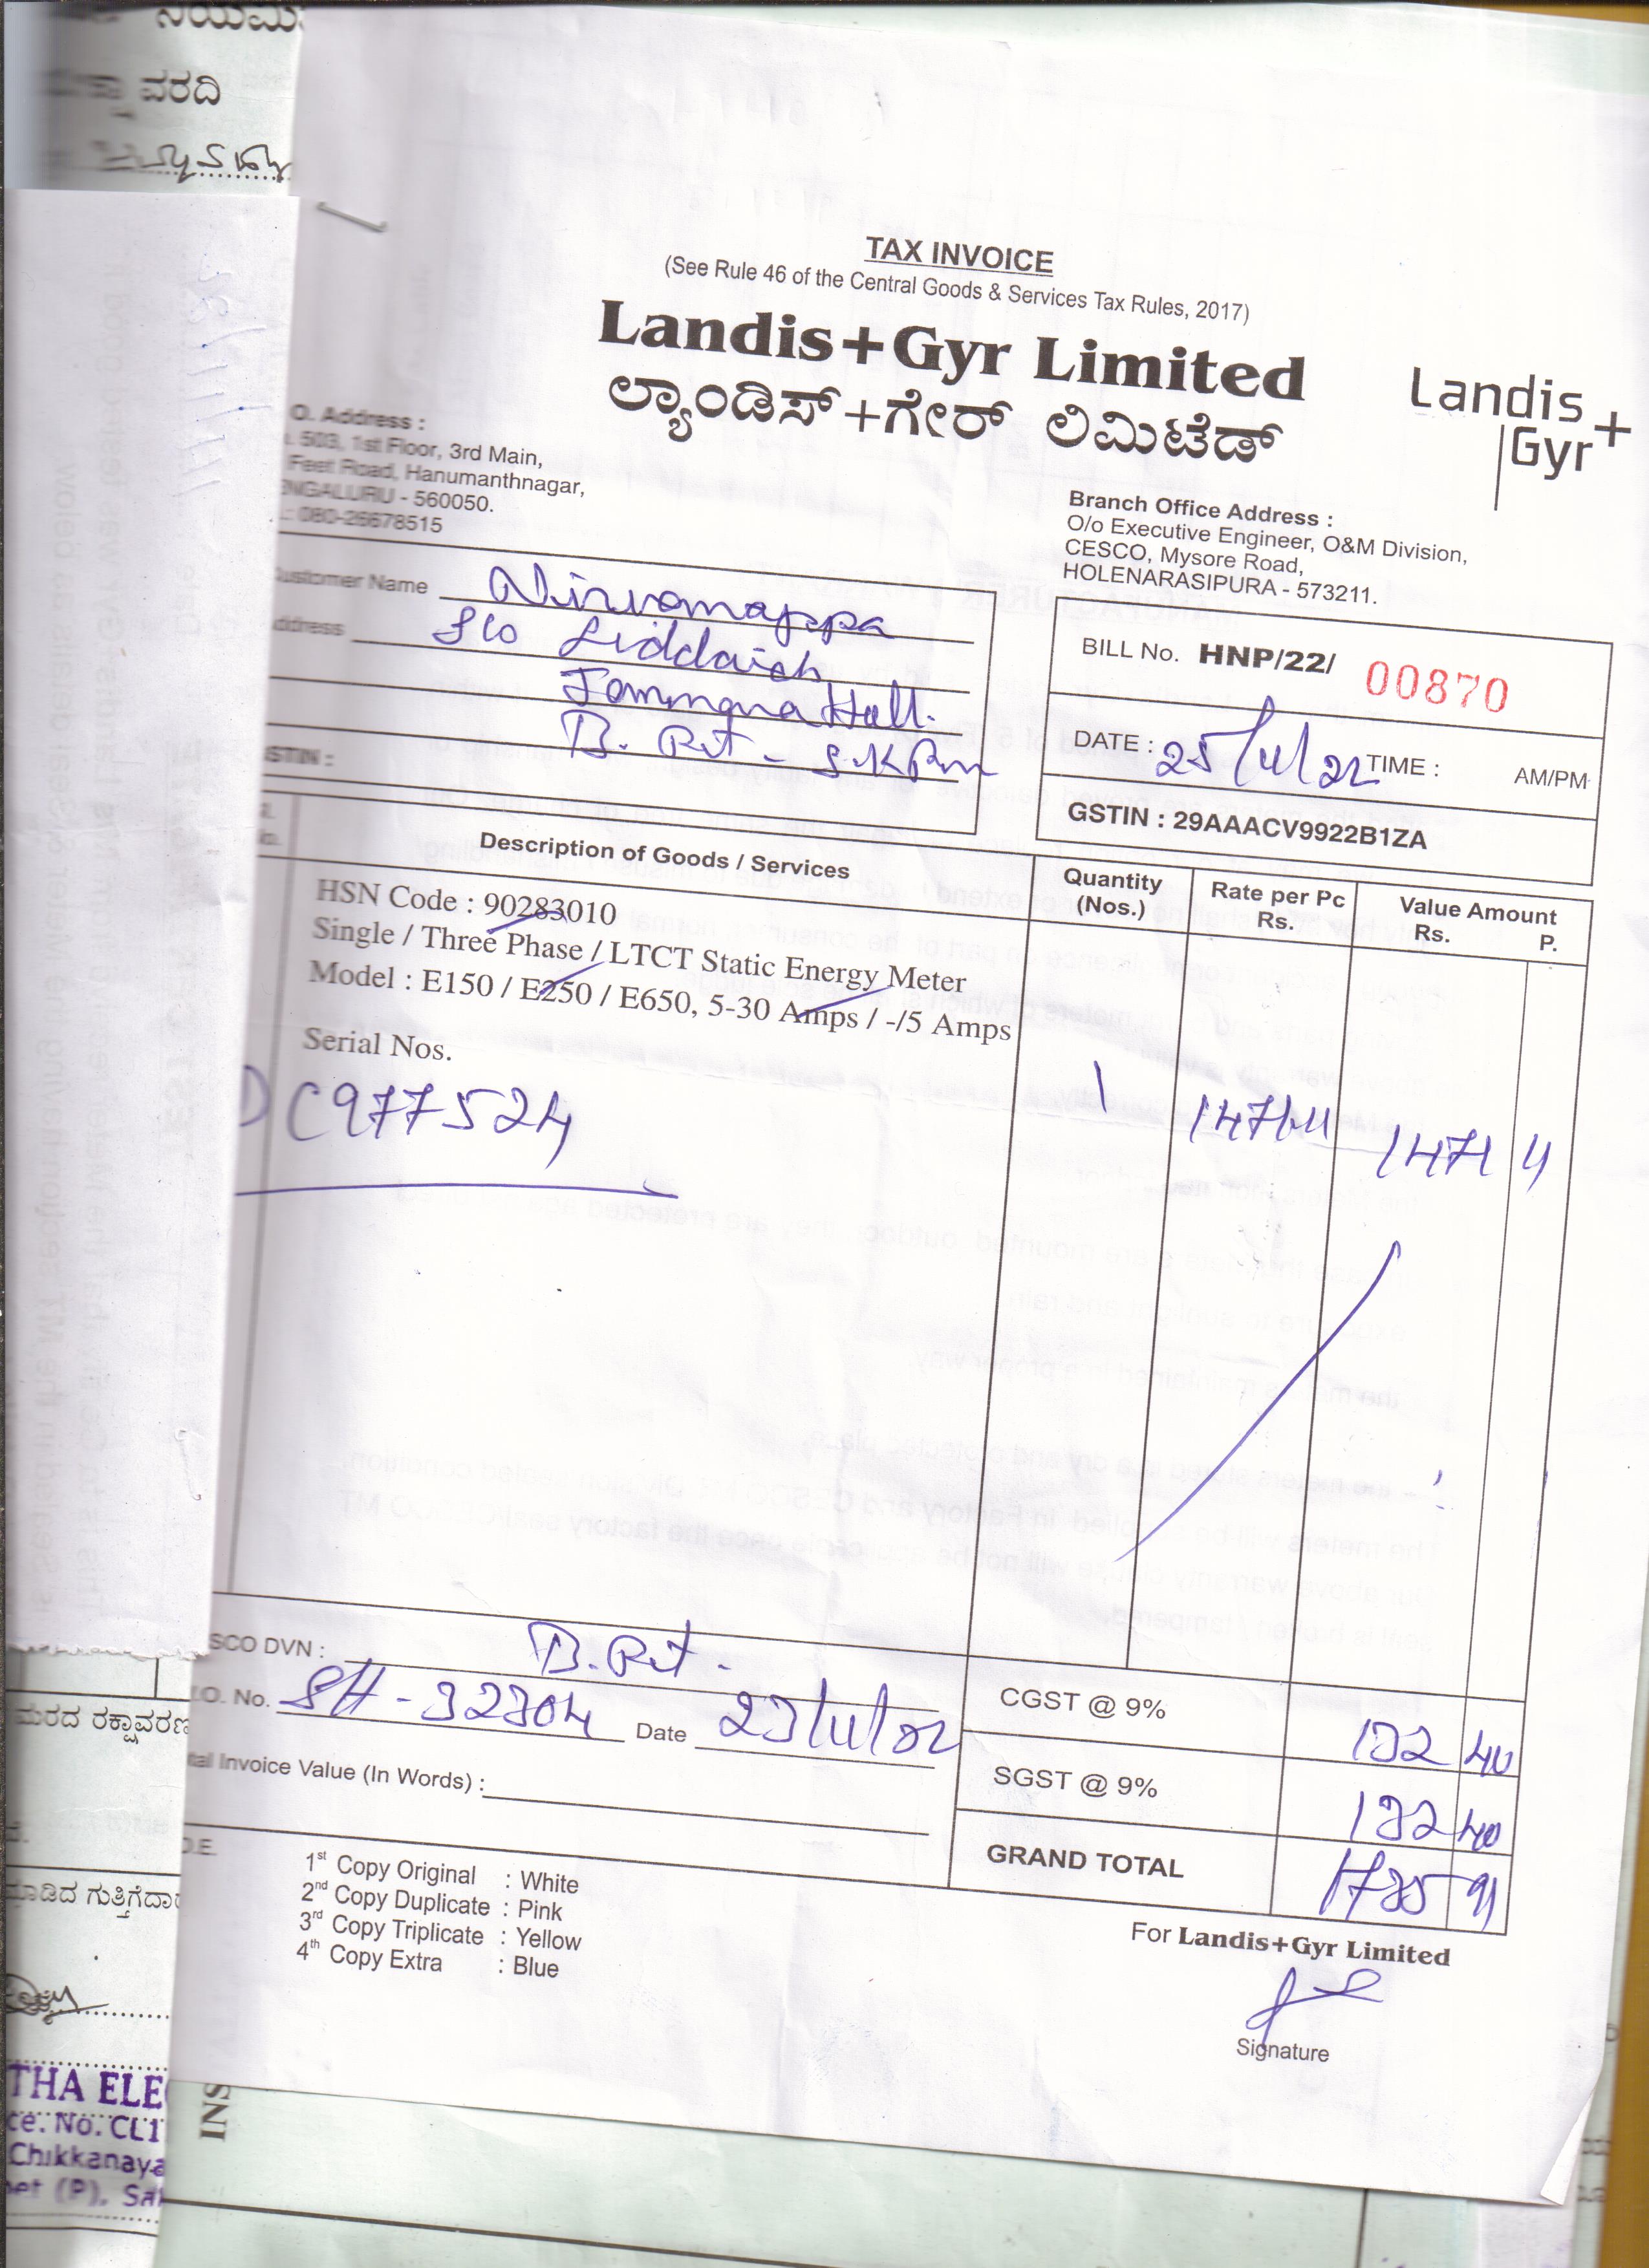 ವರದಿ
TAX INVOICE
(See Rule 46 of the Central Goods & Services Tax Rules, 2017)
Landis+Gyr Limited
ಲ್ಯಾಂಡಿಸ್+ಗೇರ್ ಲಿಮಿಟೆಡ್
Landis+
Gyr
O. Address :
503, 1st Floor, 3rd Main,
Feet Road, Hanumanthnagar,
ENGALURU - 560050.
080-26678515
Branch Office Address :
O/o Executive Engineer, O&M Division,
CESCO, Mysore Road,
HOLENARASIPURA - 573211.
ustomer Name
ddress S/o Siddaiah
B. Pet -
STIN :
BILL No. HNP/22/ 00870
DATE : 25/11/22 TIME : AM/PM
GSTIN : 29AAACV9922B1ZA
Description of Goods / Services
Quantity (Nos.)
Rate per Pc Rs.
Value Amount Rs. P.
HSN Code : 90283010
Single / Three Phase / LTCT Static Energy Meter
Model : E150 / E250 / E650, 5-30 Amps / -/5 Amps
Serial Nos.
DC977524 1 1471-11 1471 11
SCO DVN : B.Pet -
.O. No. SH-32304 Date 23/11/22
tal Invoice Value (In Words) :
CGST @ 9% 132 40
SGST @ 9% 132 40
GRAND TOTAL 1735 91
O.E.
1st Copy Original : White
2nd Copy Duplicate : Pink
3rd Copy Triplicate : Yellow
4th Copy Extra : Blue
For Landis+Gyr Limited
Signature
ಮರದ ರಕ್ಷಾವರಣ
ಮಾಡಿದ ಗುತ್ತಿಗೆದಾರ
THA ELE
ce. No. CL1
Chikkanaya
et (P), Sa
INS